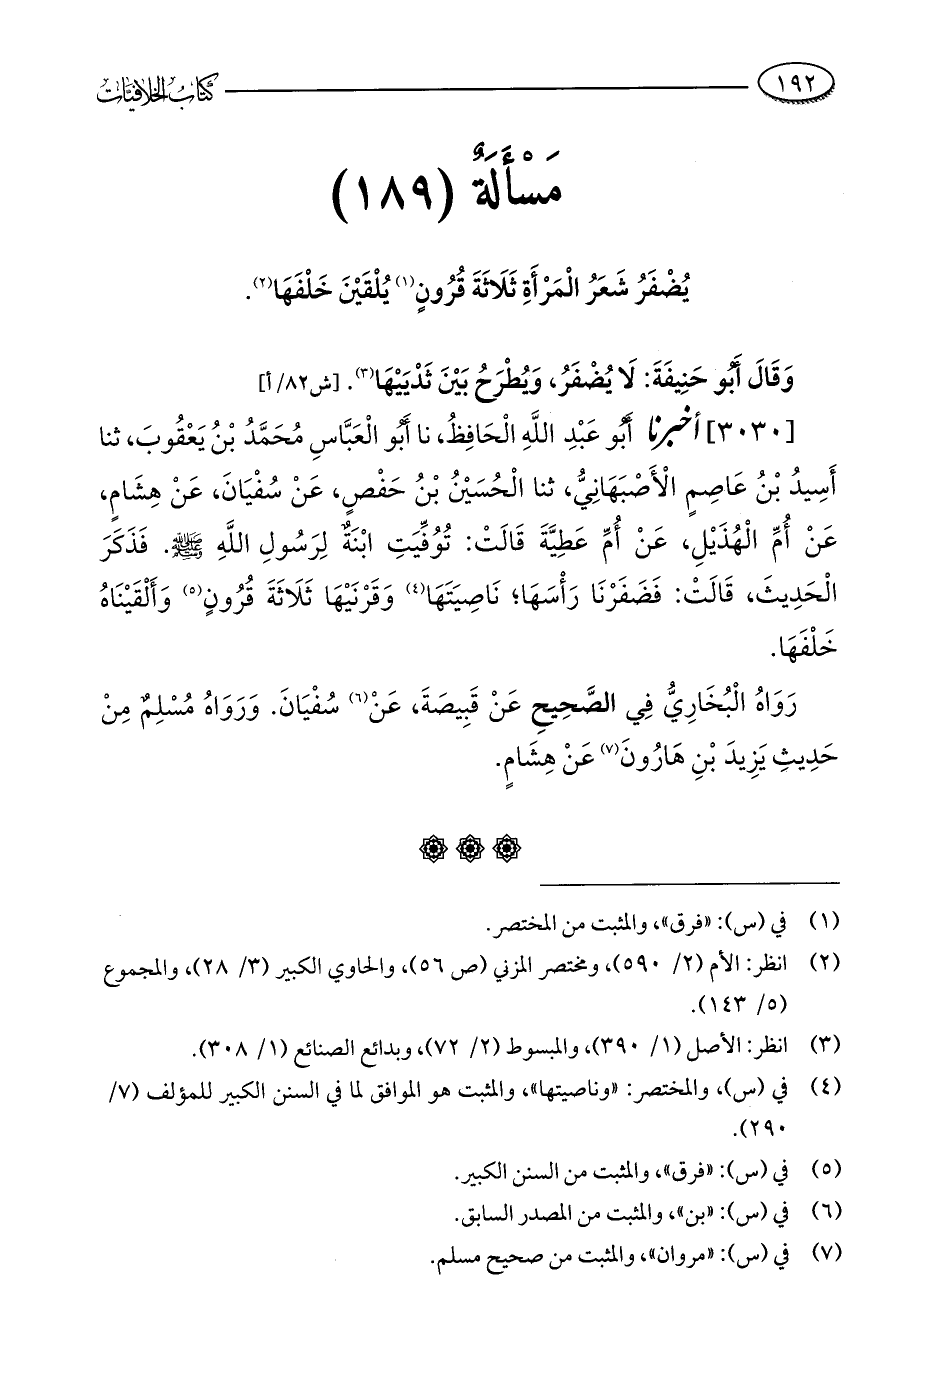 ١٩٢ كتاب الخلافيات
مَسْأَلَةٌ (١٨٩)
يُضْفَرُ شَعَرُ الْمَرْأَةِ ثَلَاثَةَ قُرُونٍ(١) يُلْقَيْنَ خَلْفَهَا(٢).
وَقَالَ أَبُو حَنِيفَةَ: لَا يُضْفَرُ، وَيُطْرَحُ بَيْنَ ثَدْيَيْهَا(٣). [ش٨٢/ أ]
[٣٠٣٠] أخبرنا أَبُو عَبْدِ اللَّهِ الْحَافِظُ، نا أَبُو الْعَبَّاسِ مُحَمَّدُ بْنُ يَعْقُوبَ، ثنا
أَسِيدُ بْنُ عَاصِمٍ الْأَصْبَهَانِيُّ، ثنا الْحُسَيْنُ بْنُ حَفْصٍ، عَنْ سُفْيَانَ، عَنْ هِشَامٍ،
عَنْ أُمِّ الْهُذَيْلِ، عَنْ أُمِّ عَطِيَّةَ قَالَتْ: تُوُفِّيَتِ ابْنَةٌ لِرَسُولِ اللَّهِ ﷺ. فَذَكَرَ
الْحَدِيثَ، قَالَتْ: فَضَفَرْنَا رَأْسَهَا؛ نَاصِيَتَهَا(٤) وَقَرْنَيْهَا ثَلَاثَةَ قُرُونٍ(٥) وَأَلْقَيْنَاهُ
خَلْفَهَا.
رَوَاهُ الْبُخَارِيُّ فِي الصَّحِيحِ عَنْ قَبِيصَةَ، عَنْ(٦) سُفْيَانَ. وَرَوَاهُ مُسْلِمٌ مِنْ
حَدِيثِ يَزِيدَ بْنِ هَارُونَ(٧) عَنْ هِشَامٍ.
(١) في (س): «فرق»، والمثبت من المختصر.
(٢) انظر: الأم (٢/ ٥٩٠)، ومختصر المزني (ص ٥٦)، والحاوي الكبير (٣/ ٢٨)، والمجموع
(٥/ ١٤٣).
(٣) انظر: الأصل (١/ ٣٩٠)، والمبسوط (٢/ ٧٢)، وبدائع الصنائع (١/ ٣٠٨).
(٤) في (س)، والمختصر: «وناصيتها»، والمثبت هو الموافق لما في السنن الكبير للمؤلف (٧/
٢٩٠).
(٥) في (س): «فرق»، والمثبت من السنن الكبير.
(٦) في (س): «بن»، والمثبت من المصدر السابق.
(٧) في (س): «مروان»، والمثبت من صحيح مسلم.